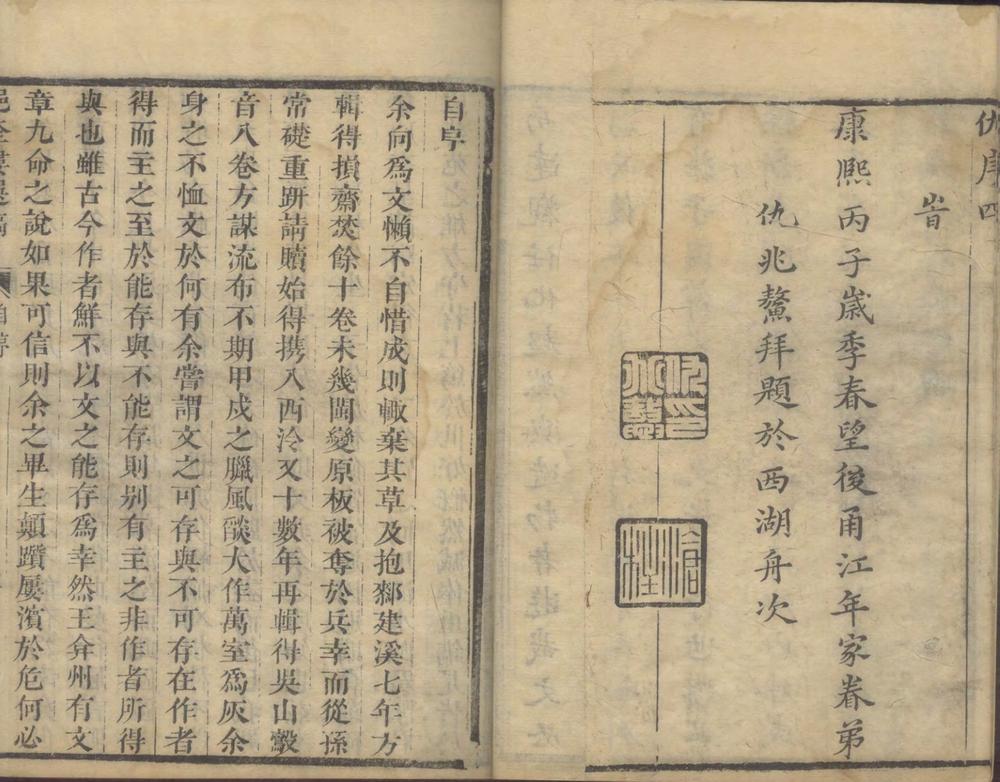 仇序四
旹
康熙丙子歲季春望後甬江年家眷弟
仇兆鰲拜題於西湖舟次
滄柱
自序
余向爲文懶不自惜成則輙棄其草及抱郄建溪七年方
輯得損齋焚餘十卷未幾閩變原板被奪於兵幸而從孫
常礎重趼請贖始得携入西泠又十數年再輯得吳山鷇
音八卷方謀流布不期甲戍之臘風燄大作萬室爲灰余
身之不恤文於何有余嘗謂文之可存與不可存在作者
得而主之至於能存與不能存則别有主之非作者所得
與也雖古今作者鮮不以文之能存爲幸然王弇州有文
章九命之說如果可信則余之畢生顛躓屢濱於危何必
自序